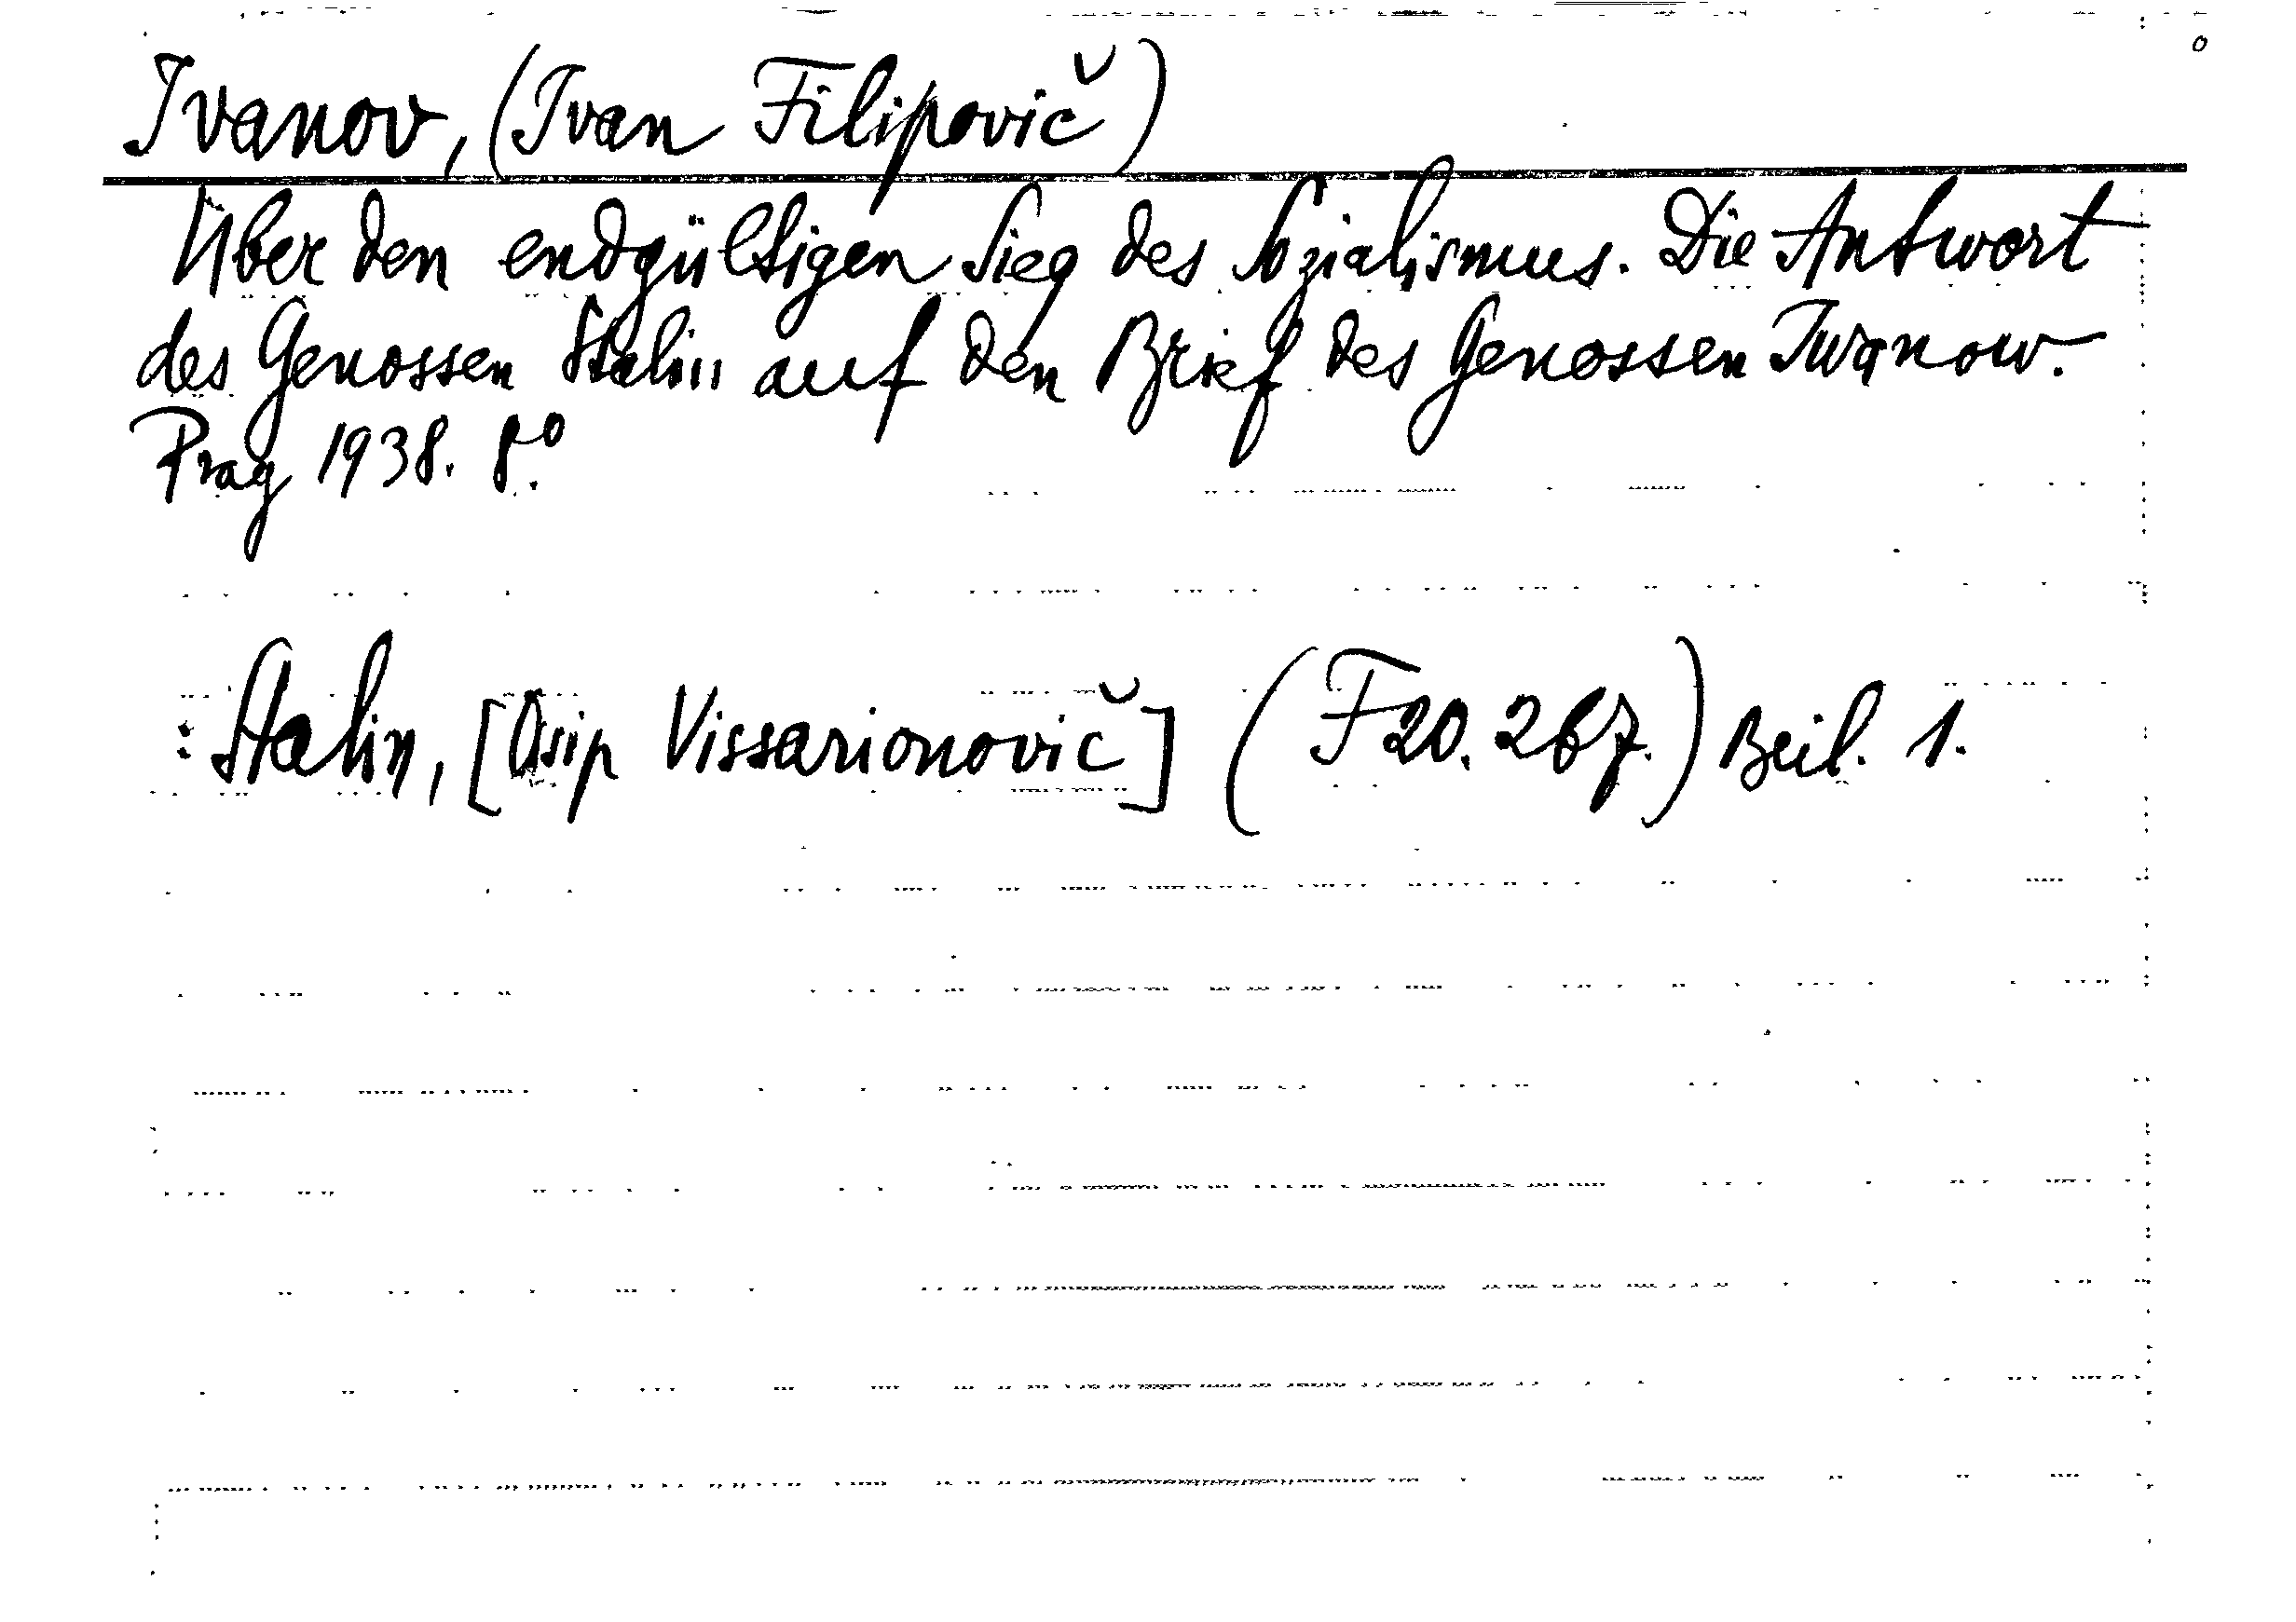 Ivanov, (Ivan Filipovič)
Über den endgültigen Sieg des Sozialismus. Die Antwort
des Genossen Stalin auf den Brief des Genossen Iwanow.
Prag 1938. 8º.
: Stalin, [Osip Vissarionovič] (F 20. 267.) Beil. 1.